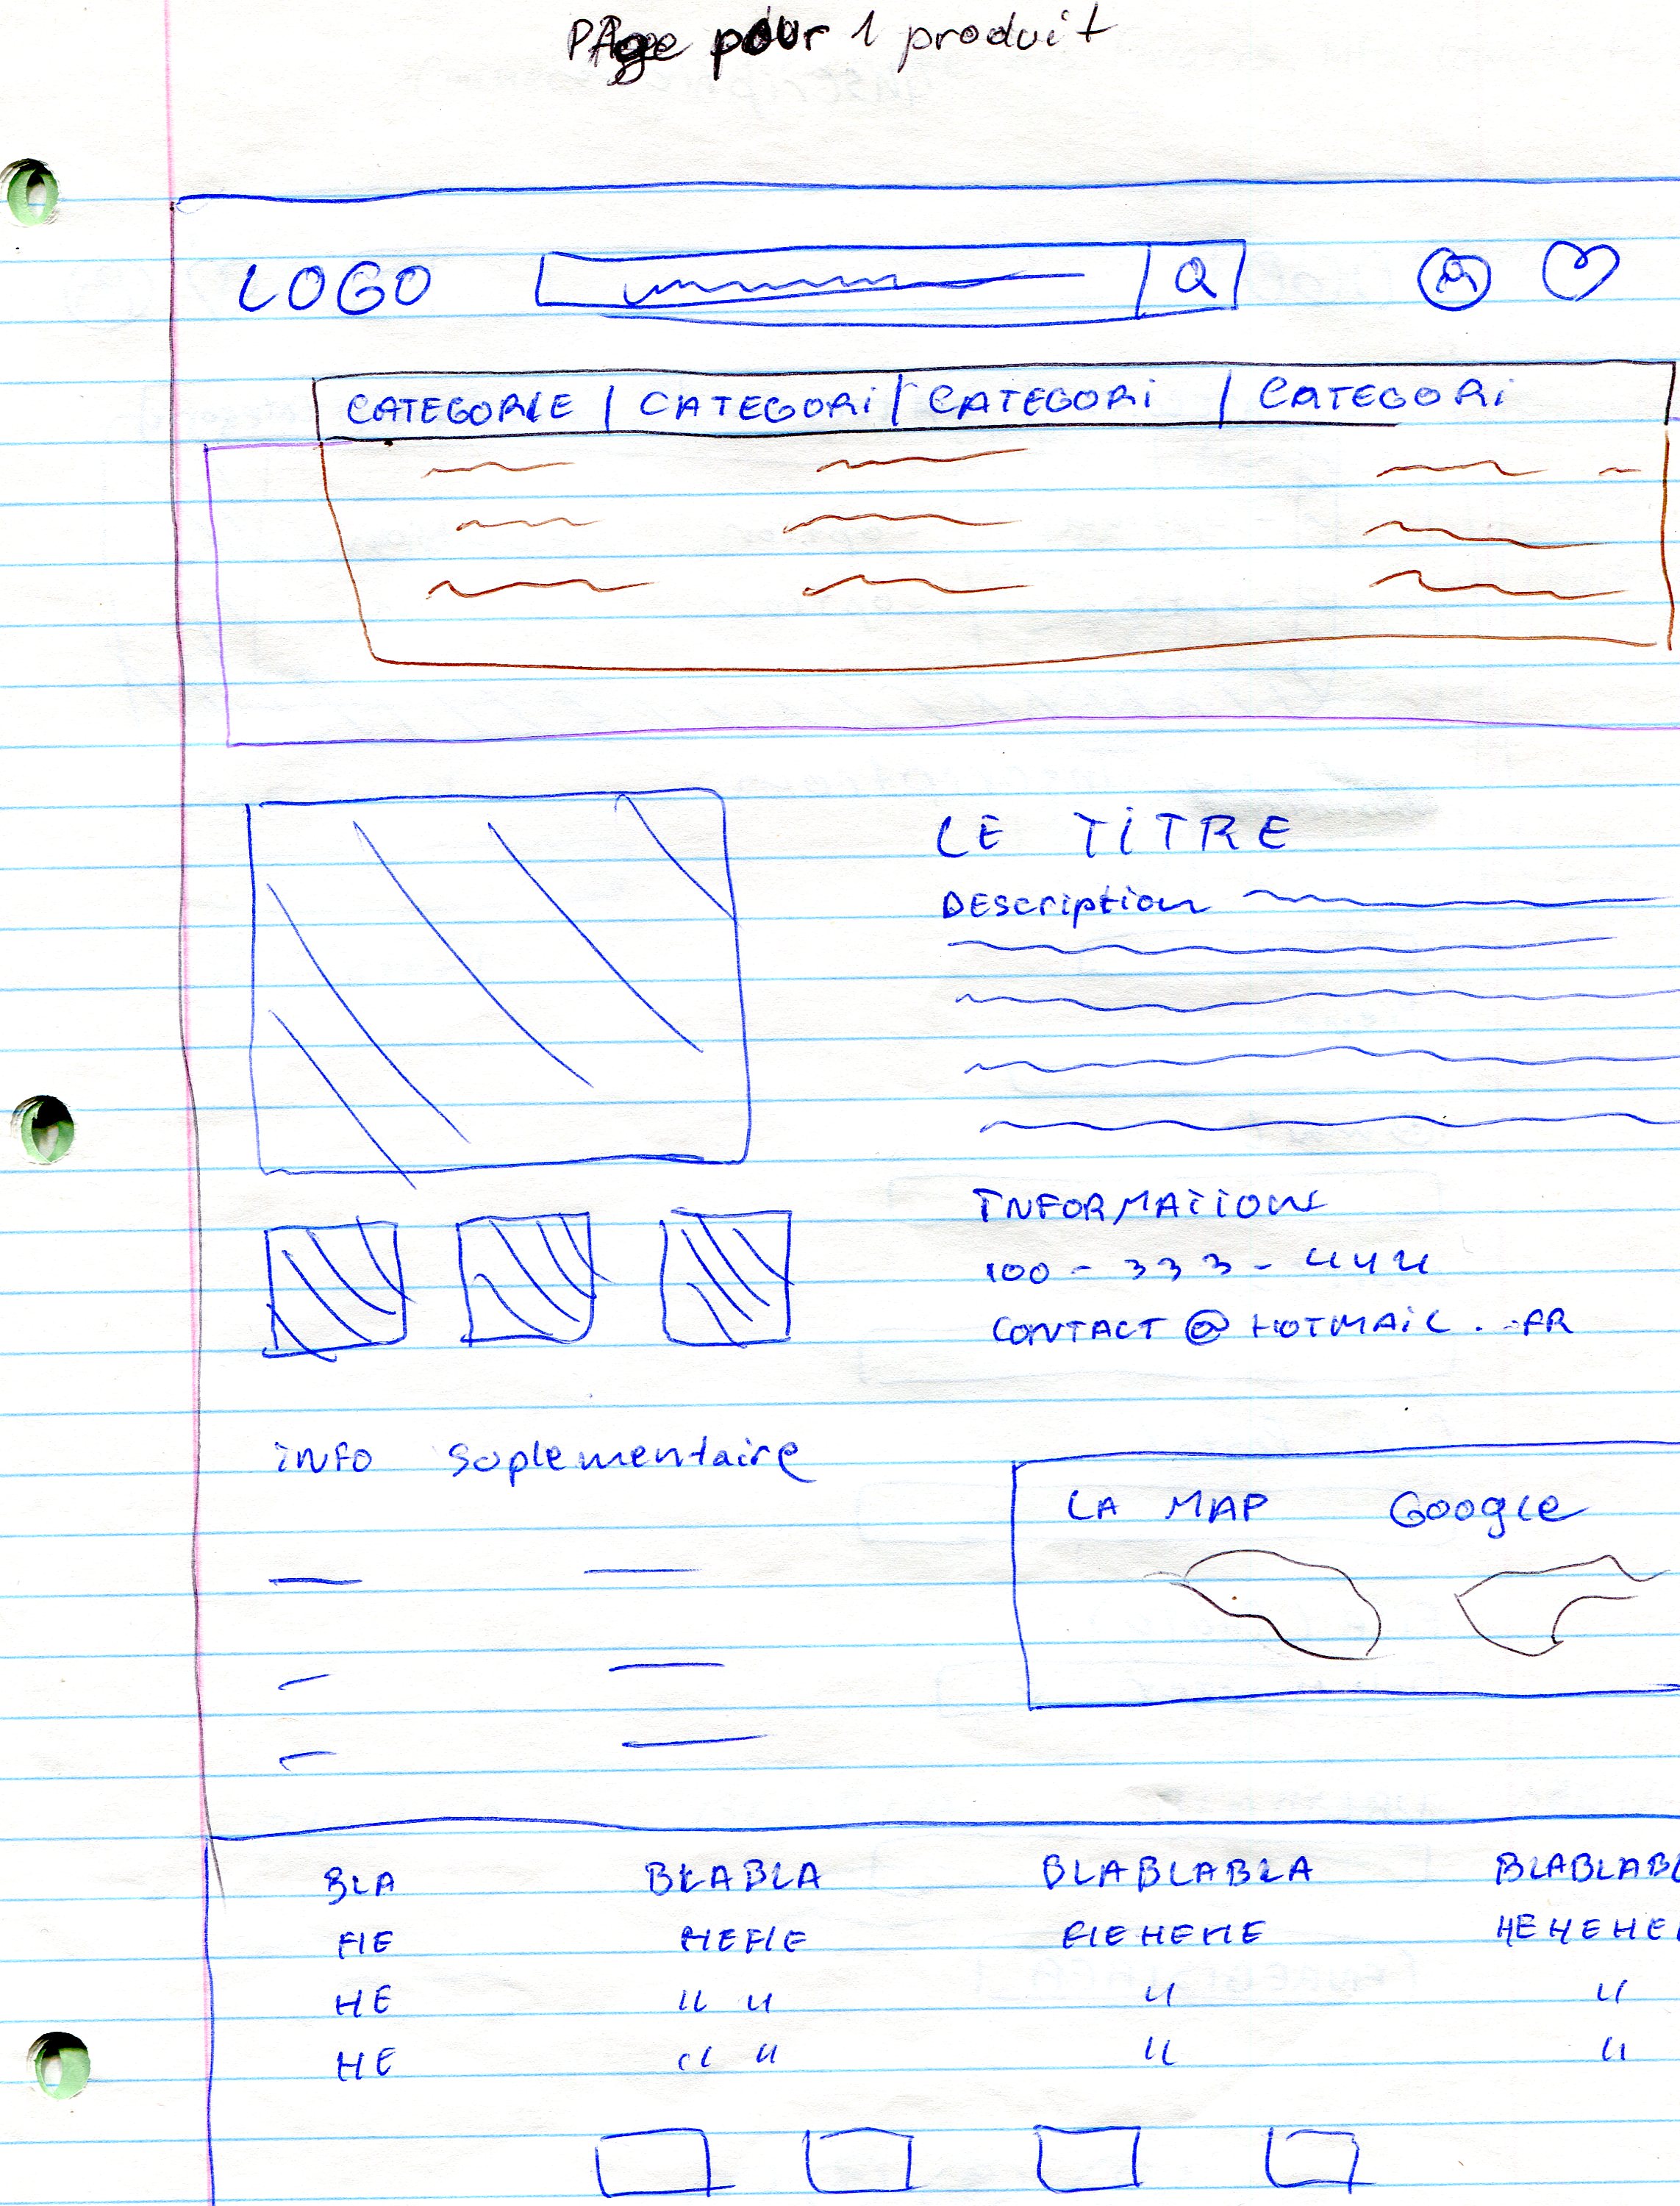 PAge pour 1 produit
LOGO
CATEGORIE | CATEGORi | CATEGORi | CATEGORi
LE TiTRE
DEscription
INFORMATiON
100 - 333 - 444
CONTACT @ HOTMAiL . FR
iNFO Suplementaire
LA MAP Google
BLA BLABLA BLABLABLA BLABLABL
HE HEHE HEHEHE HEHEHE
HE " " " "
HE " " " "